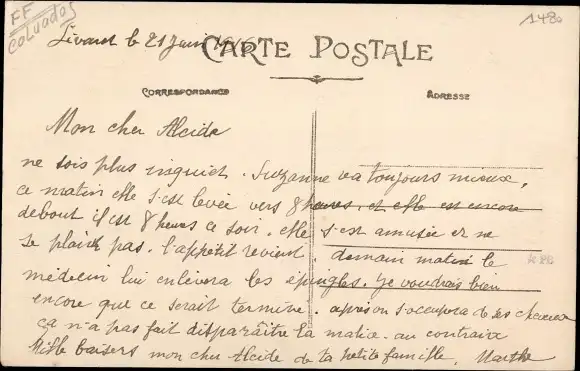 FF
CALVADOS
1480
Livarot le 21 Juin 1916
CARTE POSTALE
CORRESPONDANCE
ADRESSE
Mon cher Alcide
ne sois plus inquiet. Suzanne va toujours mieux,
ce matin elle s'est levée vers 8 heures, et elle est encore
debout il est 8 heures ce soir. elle s'est amusée et ne
se plaint pas. l'appétit revient. demain matin le
médecin lui enlevera les épingles. je voudrais bien
encore que ce serait terminé. après on s'occupera de ses cheveux
ça n'a pas fait disparaître la malice. au contraire
Mille baisers mon cher Alcide de ta petite famille. Marthe